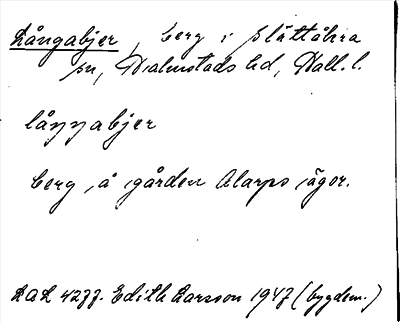 Långabjer, berg i Slättåkra
sn, Halmstads hd, Hall. l.
långabjer
berg å gården Alarps ägor.
LAL 4277. Edith Larsson 1947 (bygdem.)